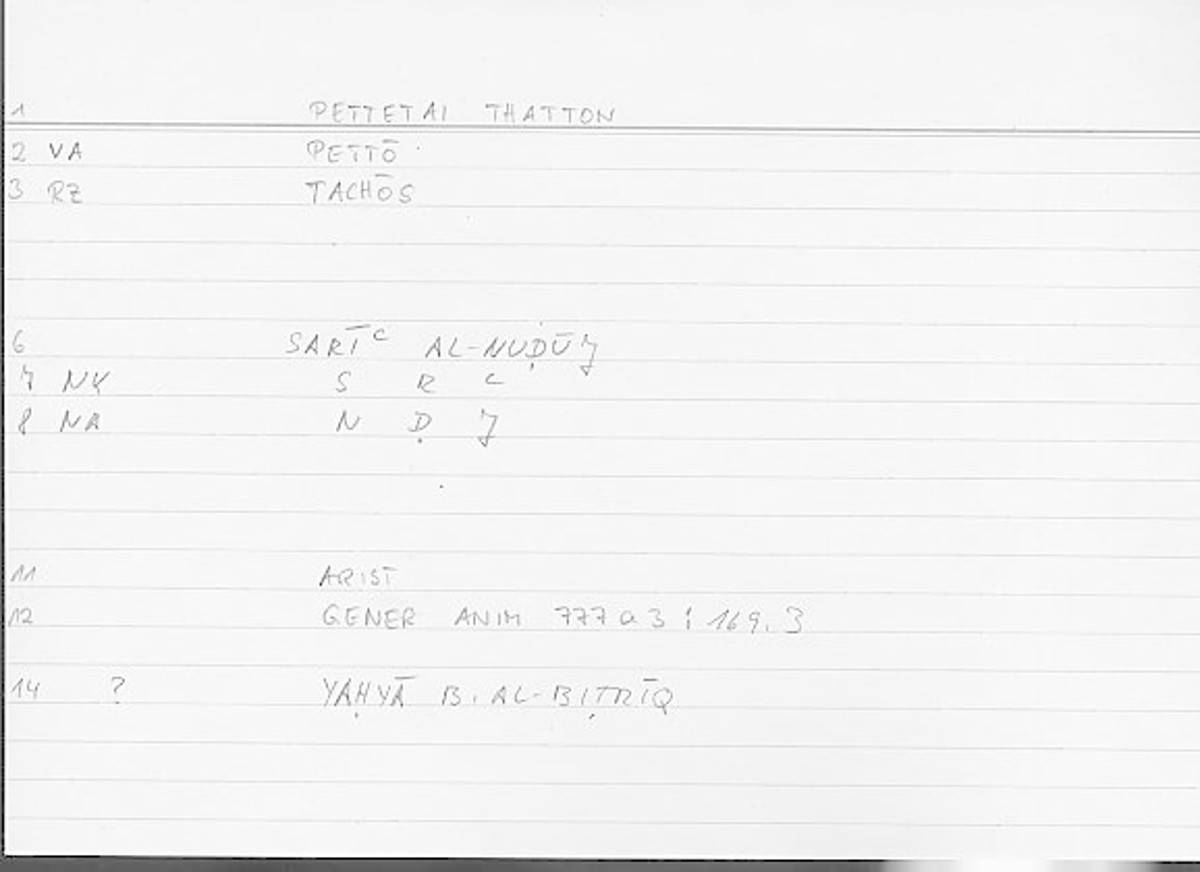 1 PETTETAI THATTON
2 VA PETTŌ
3 RZ TACHŌS
6 SARĪᶜ AL-NUḌŪJ
7 NK S R ᶜ
8 NA N Ḍ J
11 ARIST
12 GENER ANIM 777a3 ; 169.3
14 ? YAḤYĀ B. AL-BIṬRĪQ